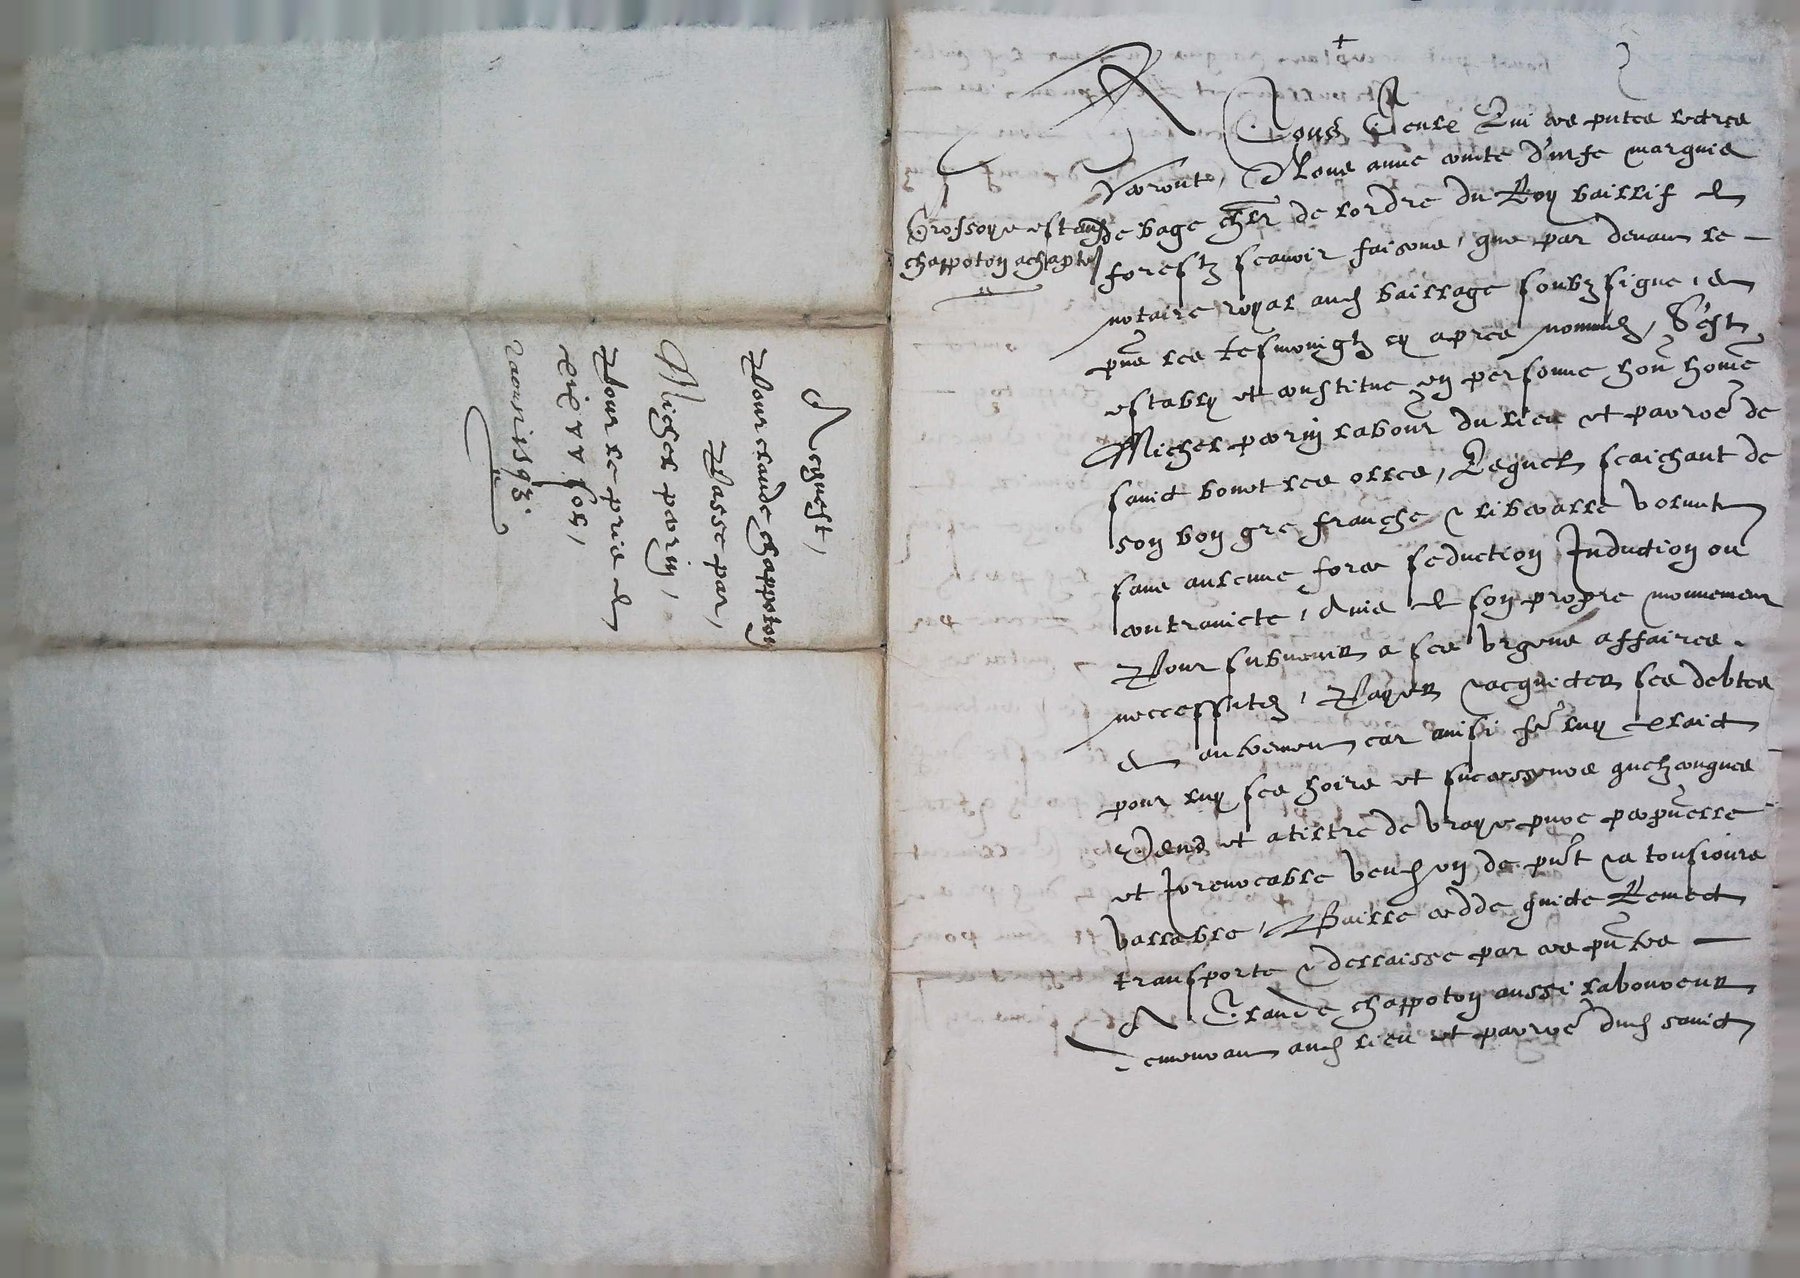 Acquest,
Pour claude chappoton
Passe par,
Michel perin,
Pour le prix de
xx sol,
A Tous Ceulx Qui ces pntes lectres
verront, Nous anne comte d'urfe marquis
de bage chlr de lordre du Roy bailLif de
Grossoye est audt
chappoton achapteur
forestz scavoir faisons, que par devant le
notaire royal aud bailLage soubzsigne, et
pns les tesmoingtz cy apres nommes, S'est
estably et constitue en personne hon homme
Michel perin labour du lieu et parroe de
sainct bonet les olles, Lequel scaichant de
son bon gre franche & liberalle volunte
sans aulcune force seduction Induction ou
contraincte, Mais de son propre mouvement
Pour subvenir a ses urgens affaires
necessites, Payer & acquicter ses debtes
et autrement car ainsi fe luy plaict
pour luy ses hoirs et successeurs quelzconques
Vend et a tiltre de vraye pure perpuelle
et Irrevocable vend en de pnt & a tousiours
vallable, Baille cedde quicte Remect
transporte & dellaisse par ces pntes
A Claude chappoton aussi laboureur
demeurant aud lieu et parroe dud sainct